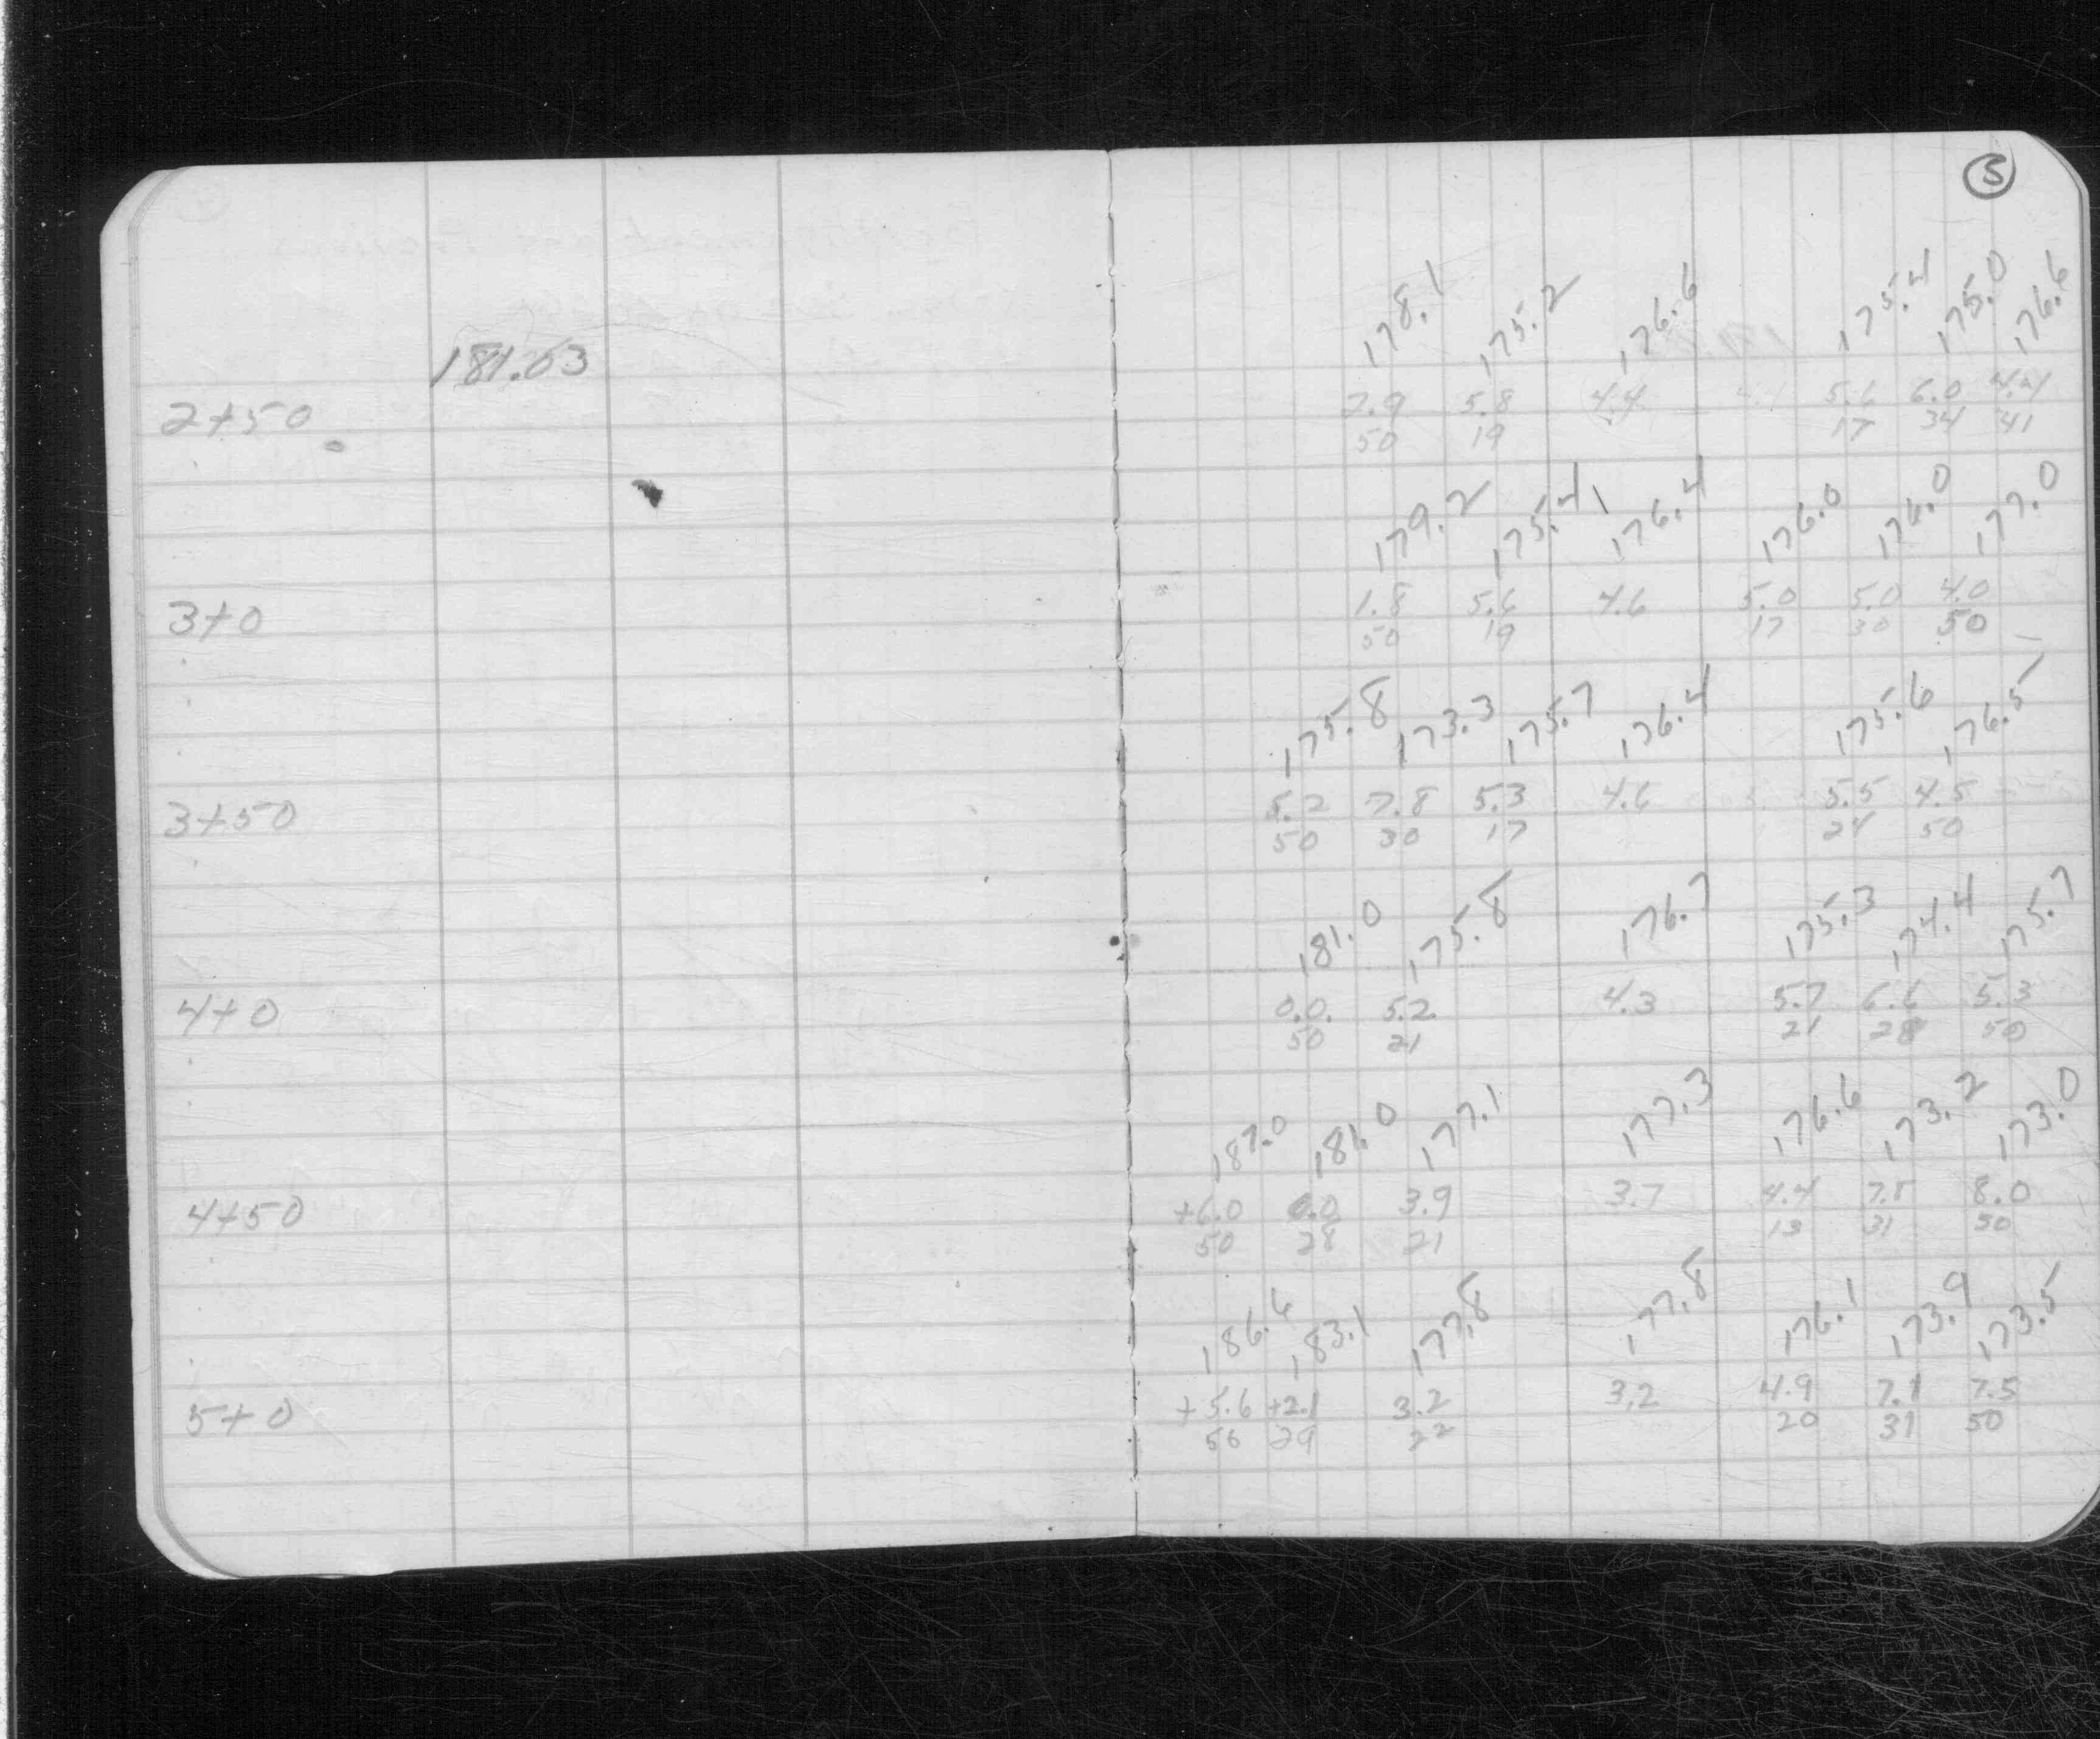 5
178.1 175.2 176.6 175.4 175.0 176.6
181.03
2+50 2.9 5.8 4.4 5.6 6.0 4.4
50 19 17 34 41
179.2 175.4 176.4 176.0 176.0 177.0
3+0 1.8 5.6 4.6 5.0 5.0 4.0
50 19 17 30 50
175.8 173.3 175.7 176.4 175.6 176.5
3+50 5.2 7.8 5.3 4.6 5.5 4.5
50 30 17 24 50
181.0 175.8 176.7 175.3 174.4 175.7
4+0 0.0 5.2 4.3 5.7 6.6 5.3
50 21 21 28 50
187.0 181.0 177.1 177.3 176.6 173.2 173.0
4+50 +6.0 0.0 3.9 3.7 4.4 7.8 8.0
50 28 21 13 31 50
186.6 183.1 177.8 177.8 176.1 173.9 173.5
5+0 +5.6 +2.1 3.2 3.2 4.9 7.1 7.5
50 29 22 20 31 50